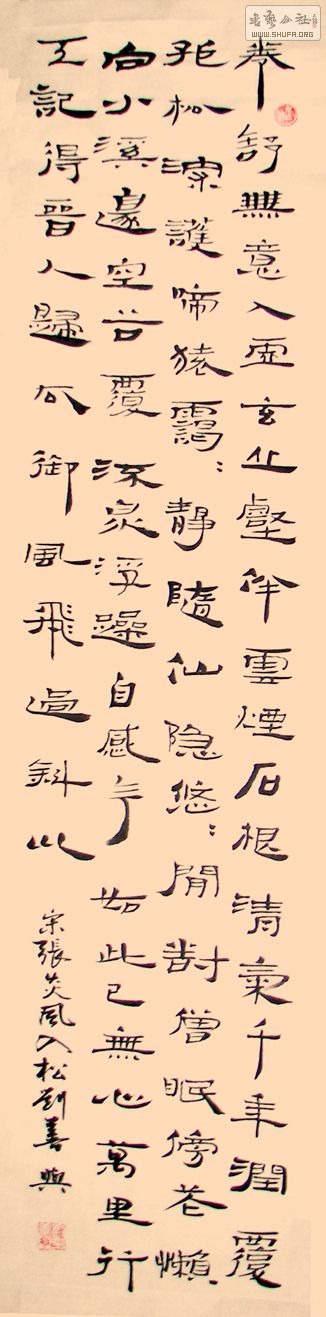 卷舒無意入虛玄丘壑伴雲煙石根清氣千年潤覆
孤松深護啼猿靄:靜隨仙隐悠:閒對僧眠傍花懶
向小溪邊空谷覆流泉浮躁自感今如此已無心萬里行
天記得晉人歸去御風飛過斜川
宋張炎風入松劉善
书艺公社
WWW.SHUFA.ORG